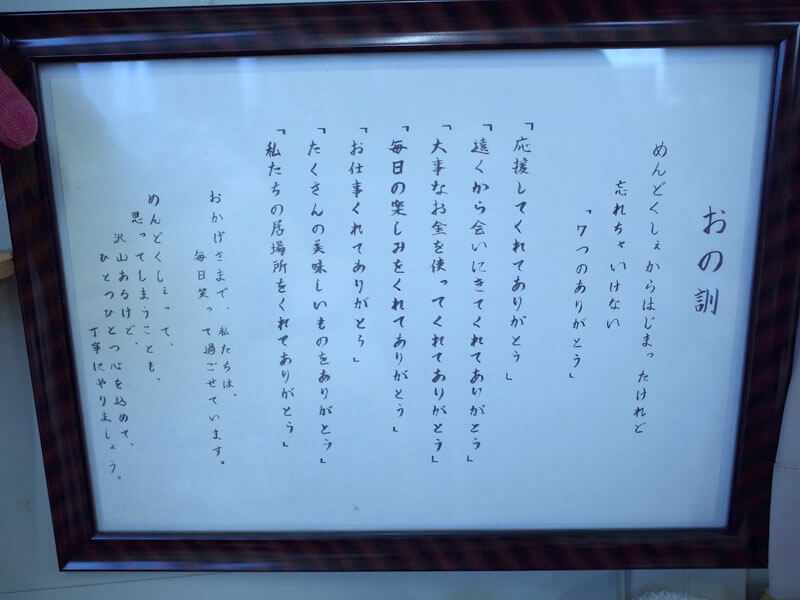 おの訓
めんどくしぇからはじまったけれど
忘れちゃいけない
「7つのありがとう」
「応援してくれてありがとう」
「遠くから会いにきてくれてありがとう」
「大事なお金を使ってくれてありがとう」
「毎日の楽しみをくれてありがとう」
「お仕事くれてありがとう」
「たくさんの美味しいものをありがとう」
「私たちの居場所をくれてありがとう」
おかげさまで、私たちは、
毎日笑って過ごせています。
めんどくしぇって、
思ってしまうことも、
沢山あるけど、
ひとつひとつ心を込めて、
丁寧にやりましょう。